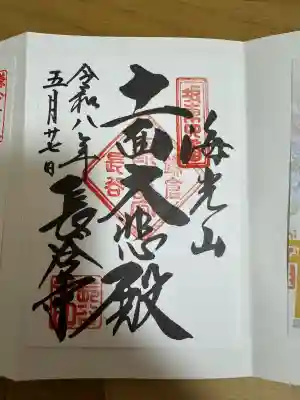 海光山
十一面大悲殿
長谷寺
令和八年
五月廿七日
長谷